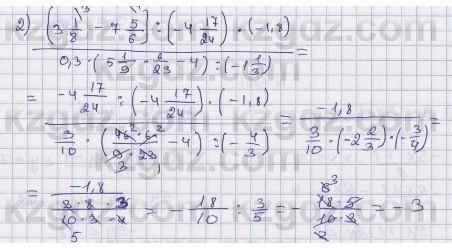 2) (3 1/8 - 7 5/6) : (-4 17/24) · (-1,8)
0,3 · (5 1/9 · 6/23 - 4) : (-1 1/3) =
= -4 17/24 : (-4 17/24) · (-1,8)
3/10 · (46 · 6/9 · 23 - 4) : (-4/3) = -1,8
3/10 · (-2 2/3) · (-3/4) =
= -1,8
3 · 8 · 3
10 · 3 · 4 = - 18/10 : 3/5 = - 18 · 5/10 · 3 = -3
kzgdz.com